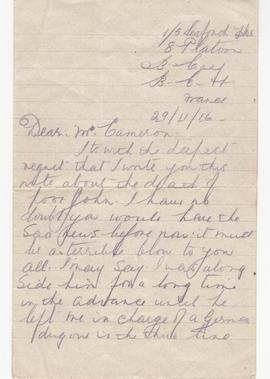 1/5 Seaforth Hrs
8 Platoon
B. Coy
B. E. F
France
29/11/16.
Dear Mr Cameron.
Its with the deepest
regret that I write you this
note about the death of
poor John. I have no
doubt you would have the
Sad news before now it must
be a terrible blow to you
all. I may say I was along
side him for a long time
in the advance until he
left me in charge of a German
dugout in the third line